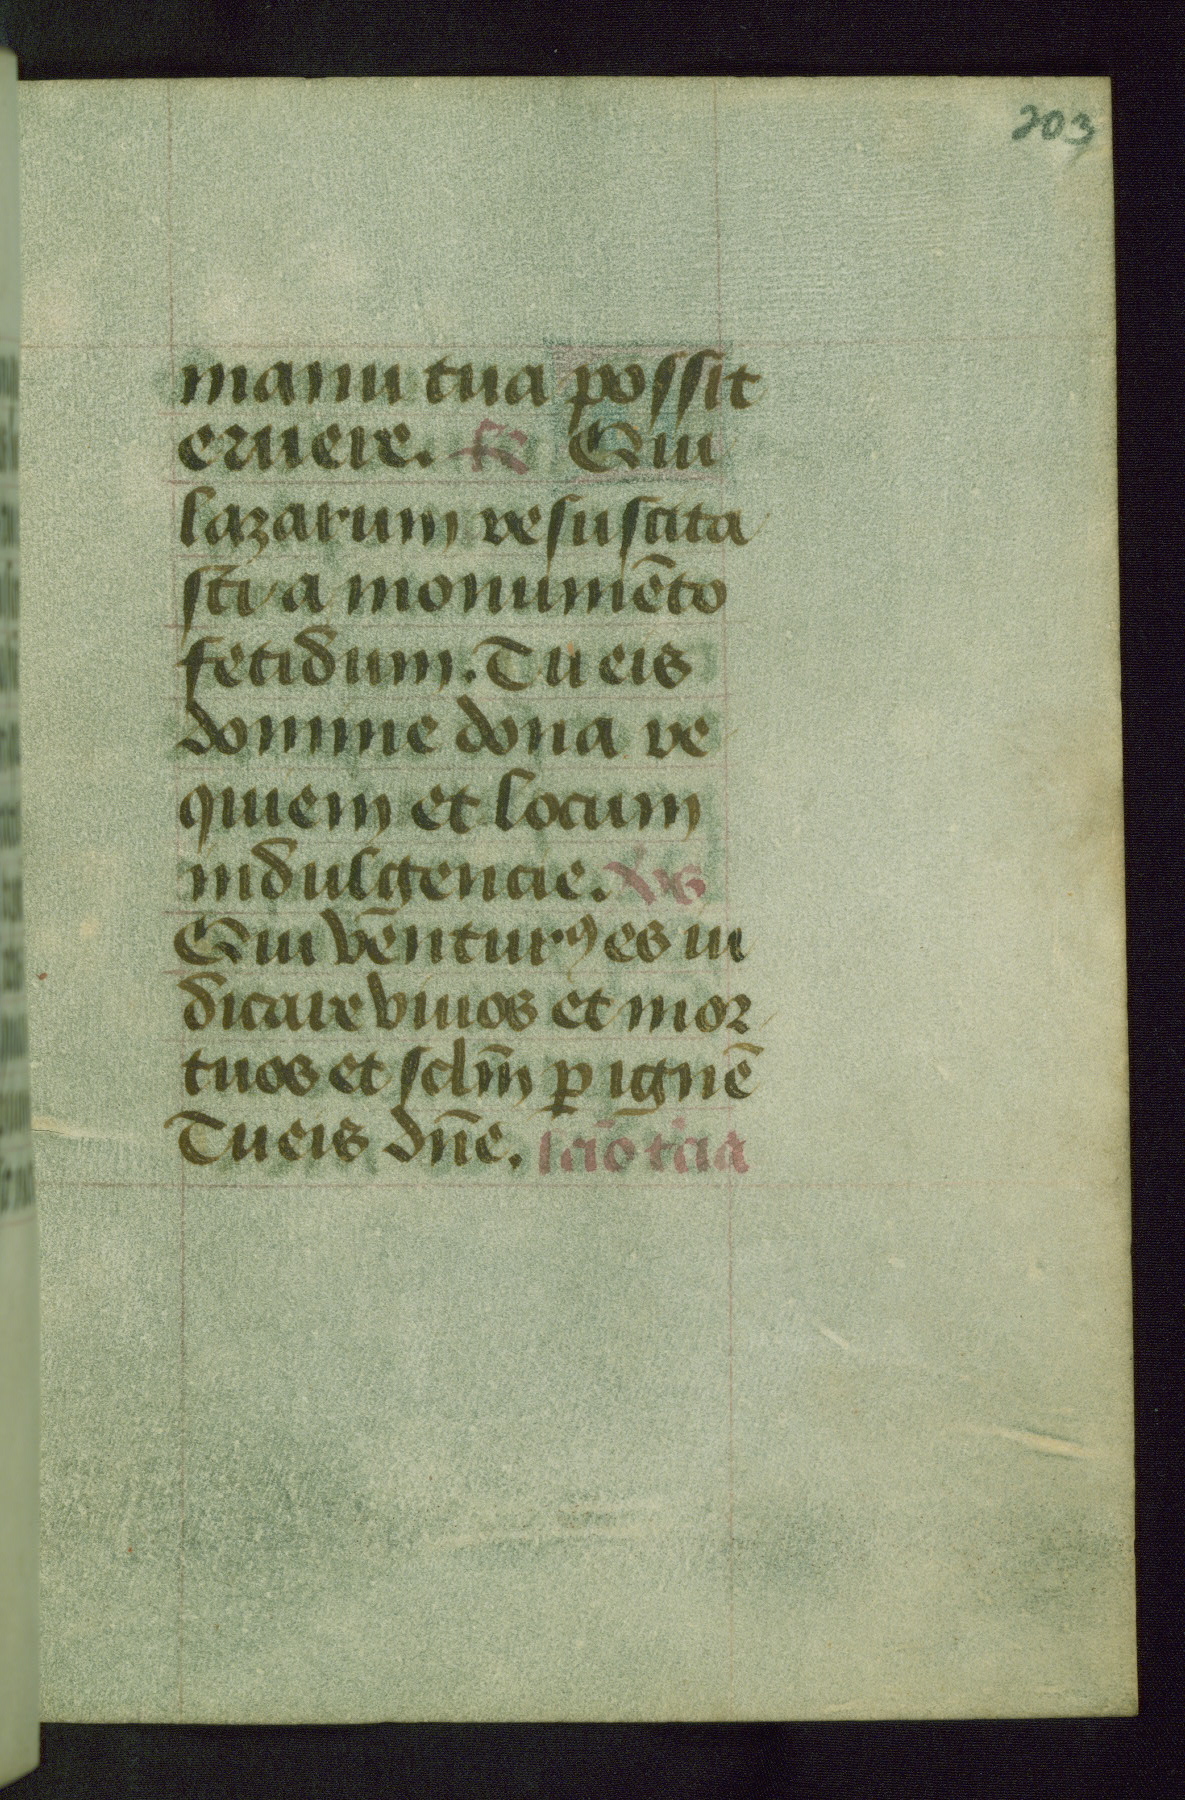 203
manu tua possit
eruere. R Qui
lazarum resuscita
sti a monumēto
fetidum. Tu eis
domine dona re
quiem et locum
indulgencie. Vs
Qui vēnturꝯ es iu
dicare viuos et mor
tuos et sclm̄ ꝑ ignē
Tu eis dn̄e. lcīo tcia